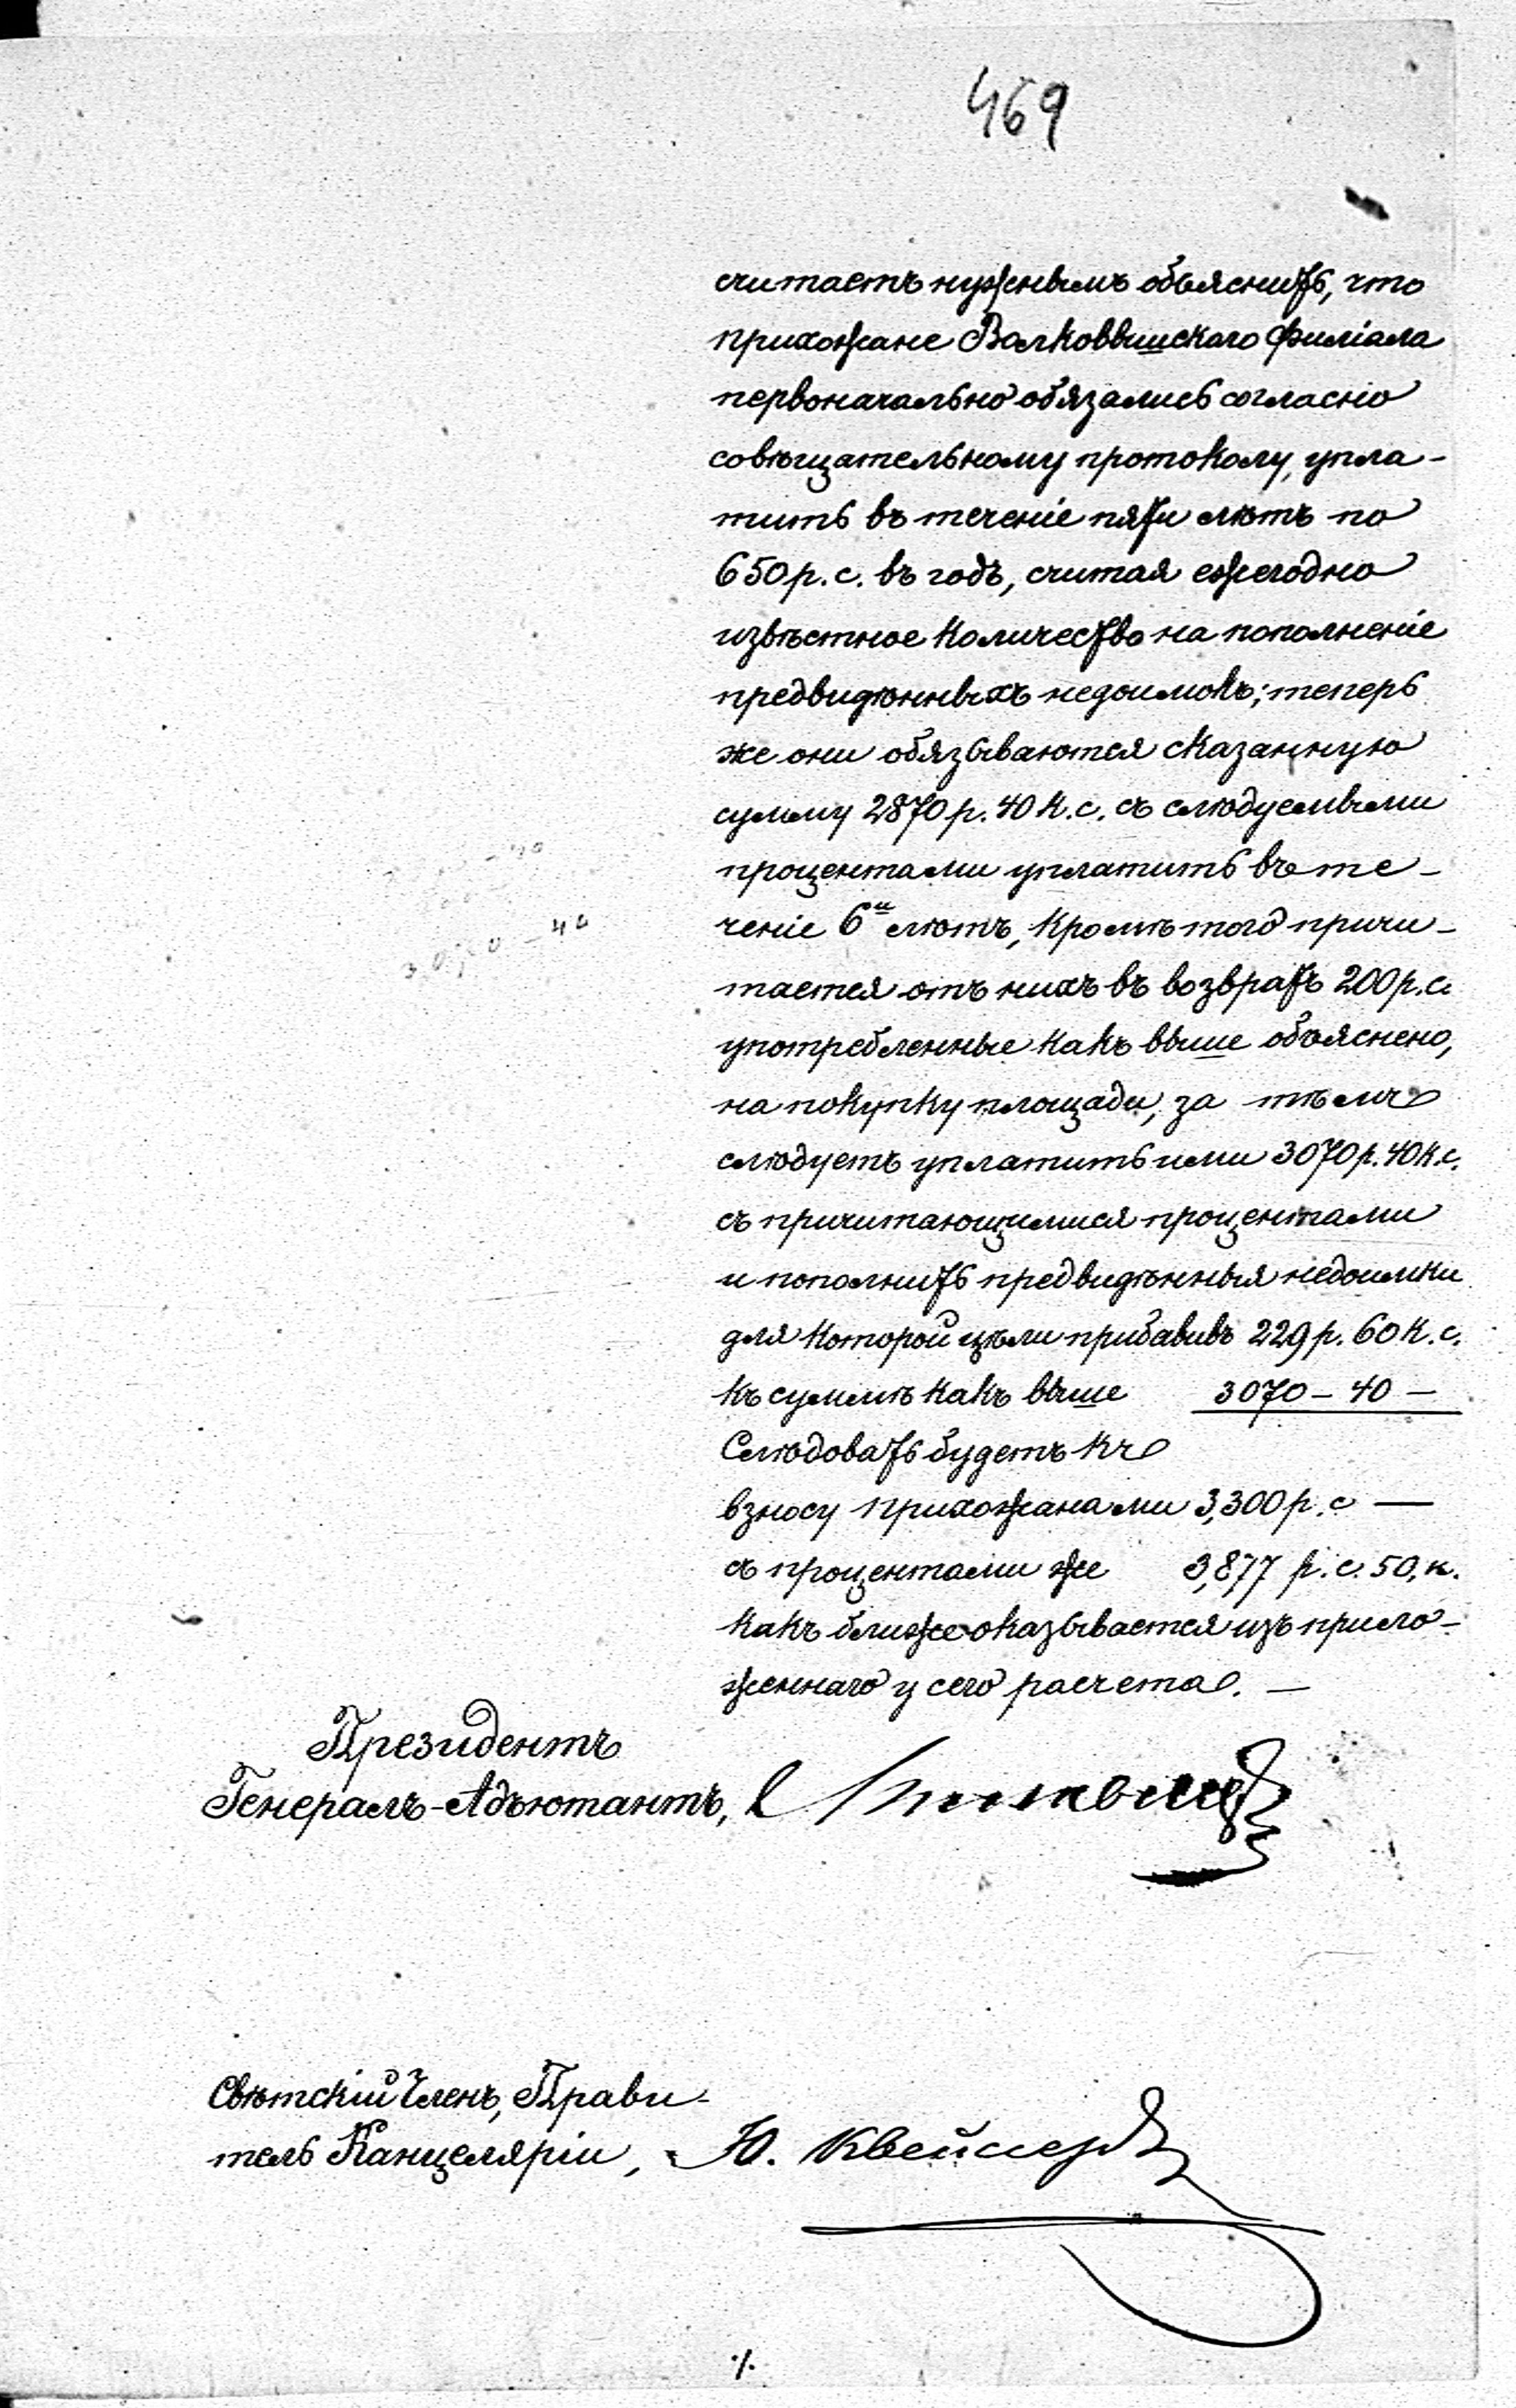 469
считаетъ нужнымъ объяснить, что
прихожане Волковышскаго Филіала
первоначально обязались согласно
совѣщательному протоколу, упла-
тить въ теченіе пяти лѣтъ по
650 р. с. въ годъ, считая ежегодно
извѣстное количество на пополненіе
предвидѣнныхъ недоимокъ; теперь
же они обязываются сказанную
сумму 2870 р. 40 к. с. съ слѣдуемыми
процентами уплатить въ те-
ченіе 6и лѣтъ, кромѣ того причи-
тается отъ нихъ въ возвратъ 200 р. с.
употребленные какъ выше объяснено,
на покупку площади, за тѣмъ
слѣдуетъ уплатить ими 3070 р. 40 к. с.
съ причитающимися процентами
и пополнить предвидѣнныя недоимки
для которой цѣли прибавивъ 229 р. 60 к. с.
къ суммѣ какъ выше 3070 – 40 –
Слѣдовать будетъ къ
взносу прихожанами 3,300 р. с —
съ процентами же 3,877 р. с. 50, к.
какъ ближе оказывается изъ прило-
женнаго у сего расчета. —
Президентъ
Генералъ-Адъютантъ,
Свѣтскій Членъ, Прави-
тель Канцеляріи, Ю. Квейссеръ
·/.